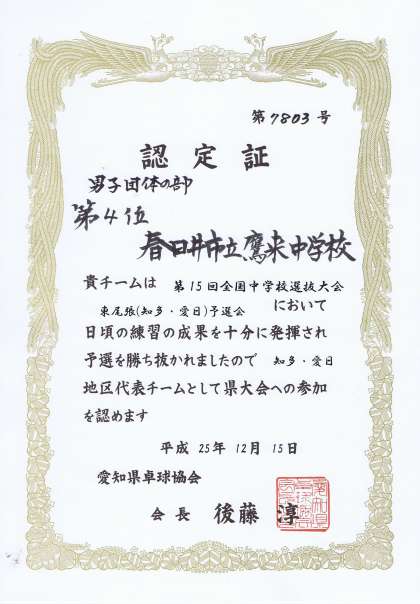 第7803号
認定証
男子団体の部
第4位
春日井市立鷹来中学校
貴チームは 第15回全国中学校選抜大会
東尾張(知多・愛日)予選会 において
日頃の練習の成果を十分に発揮され
予選を勝ち抜かれましたので 知多・愛日
地区代表チームとして県大会への参加
を認めます
平成 25年 12月 15日
愛知県卓球協会
会長 後藤 淳